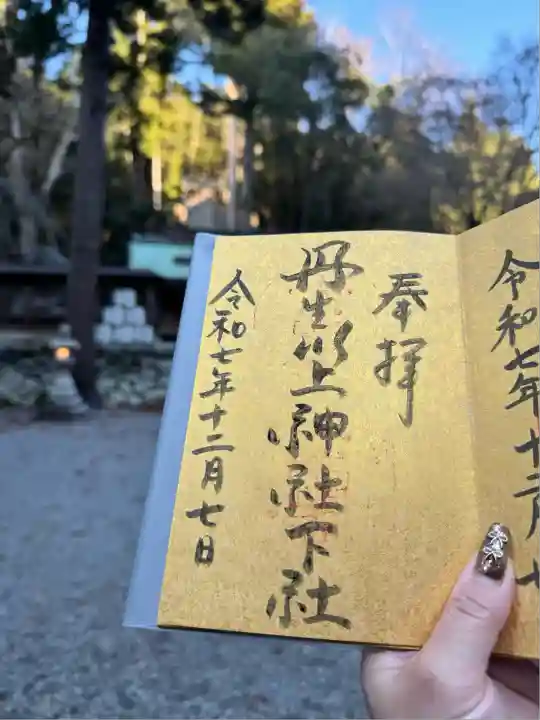 令和七年十二月七
奉拝
丹生川上神社下社
令和七年十二月七日